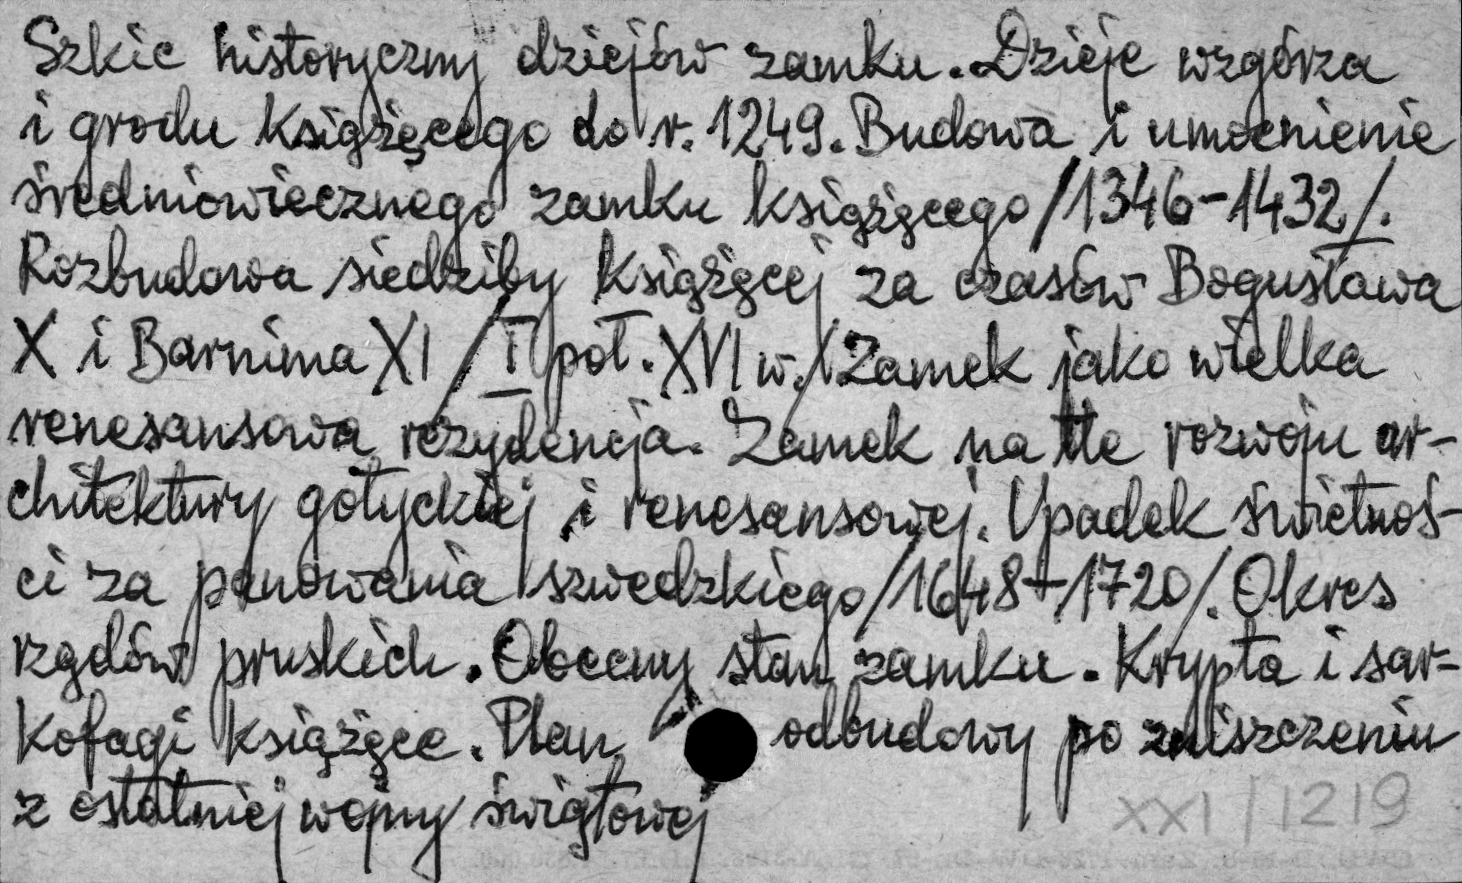 Szkic historyczny dziejów zamku. Dzieje wzgórza
i grodu książęcego do r. 1249. Budowa i umocnienie
średniowiecznego zamku książęcego /1346-1432/.
Rozbudowa siedziby książęcej za czasów Bogusława
X i Barnima XI /I poł. XVI w./ Zamek jako wielka
renesansowa rezydencja. Zamek na tle rozwoju ar-
chitektury gotyckiej i renesansowej. Upadek świetnoś-
ci za panowania szwedzkiego /1648-1720/. Okres
rządów pruskich. Obecny stan zamku. Krypta i sar-
kofagi książęce. Plan odbudowy po zniszczeniu
z ostatniej wojny światowej
XXI/1219